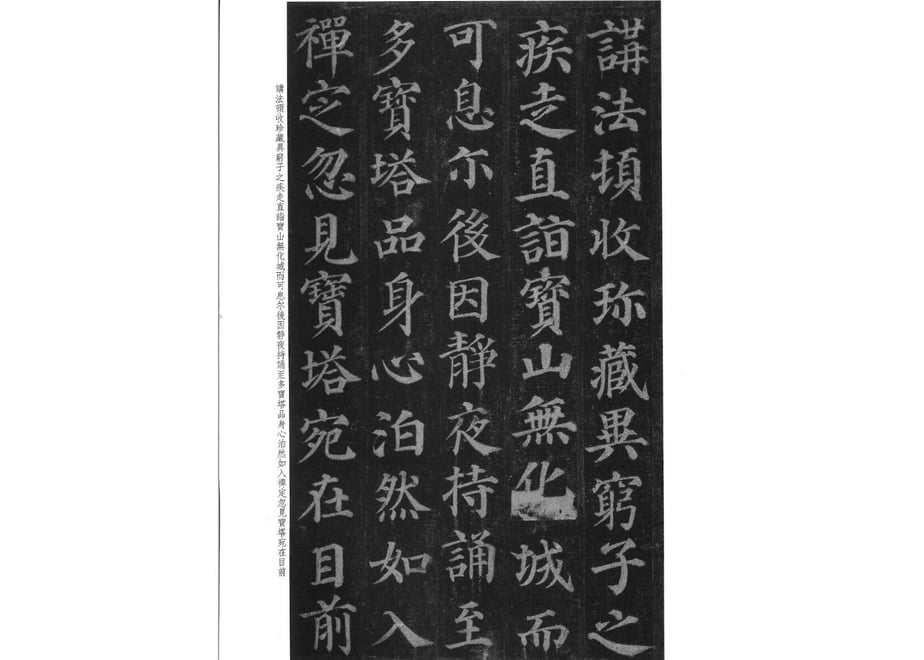 講法頓收珎藏異窮子之
疾走直詣寶山無化城而
可息尓後因靜夜持誦至
多寶塔品身心泊然如入
禪定忽見寶塔宛在目前
講法頓收珍藏異窮子之疾走直詣寶山無化城而可息尔後因靜夜持誦至多寶塔品身心泊然如入禪定忽見寶塔宛在目前